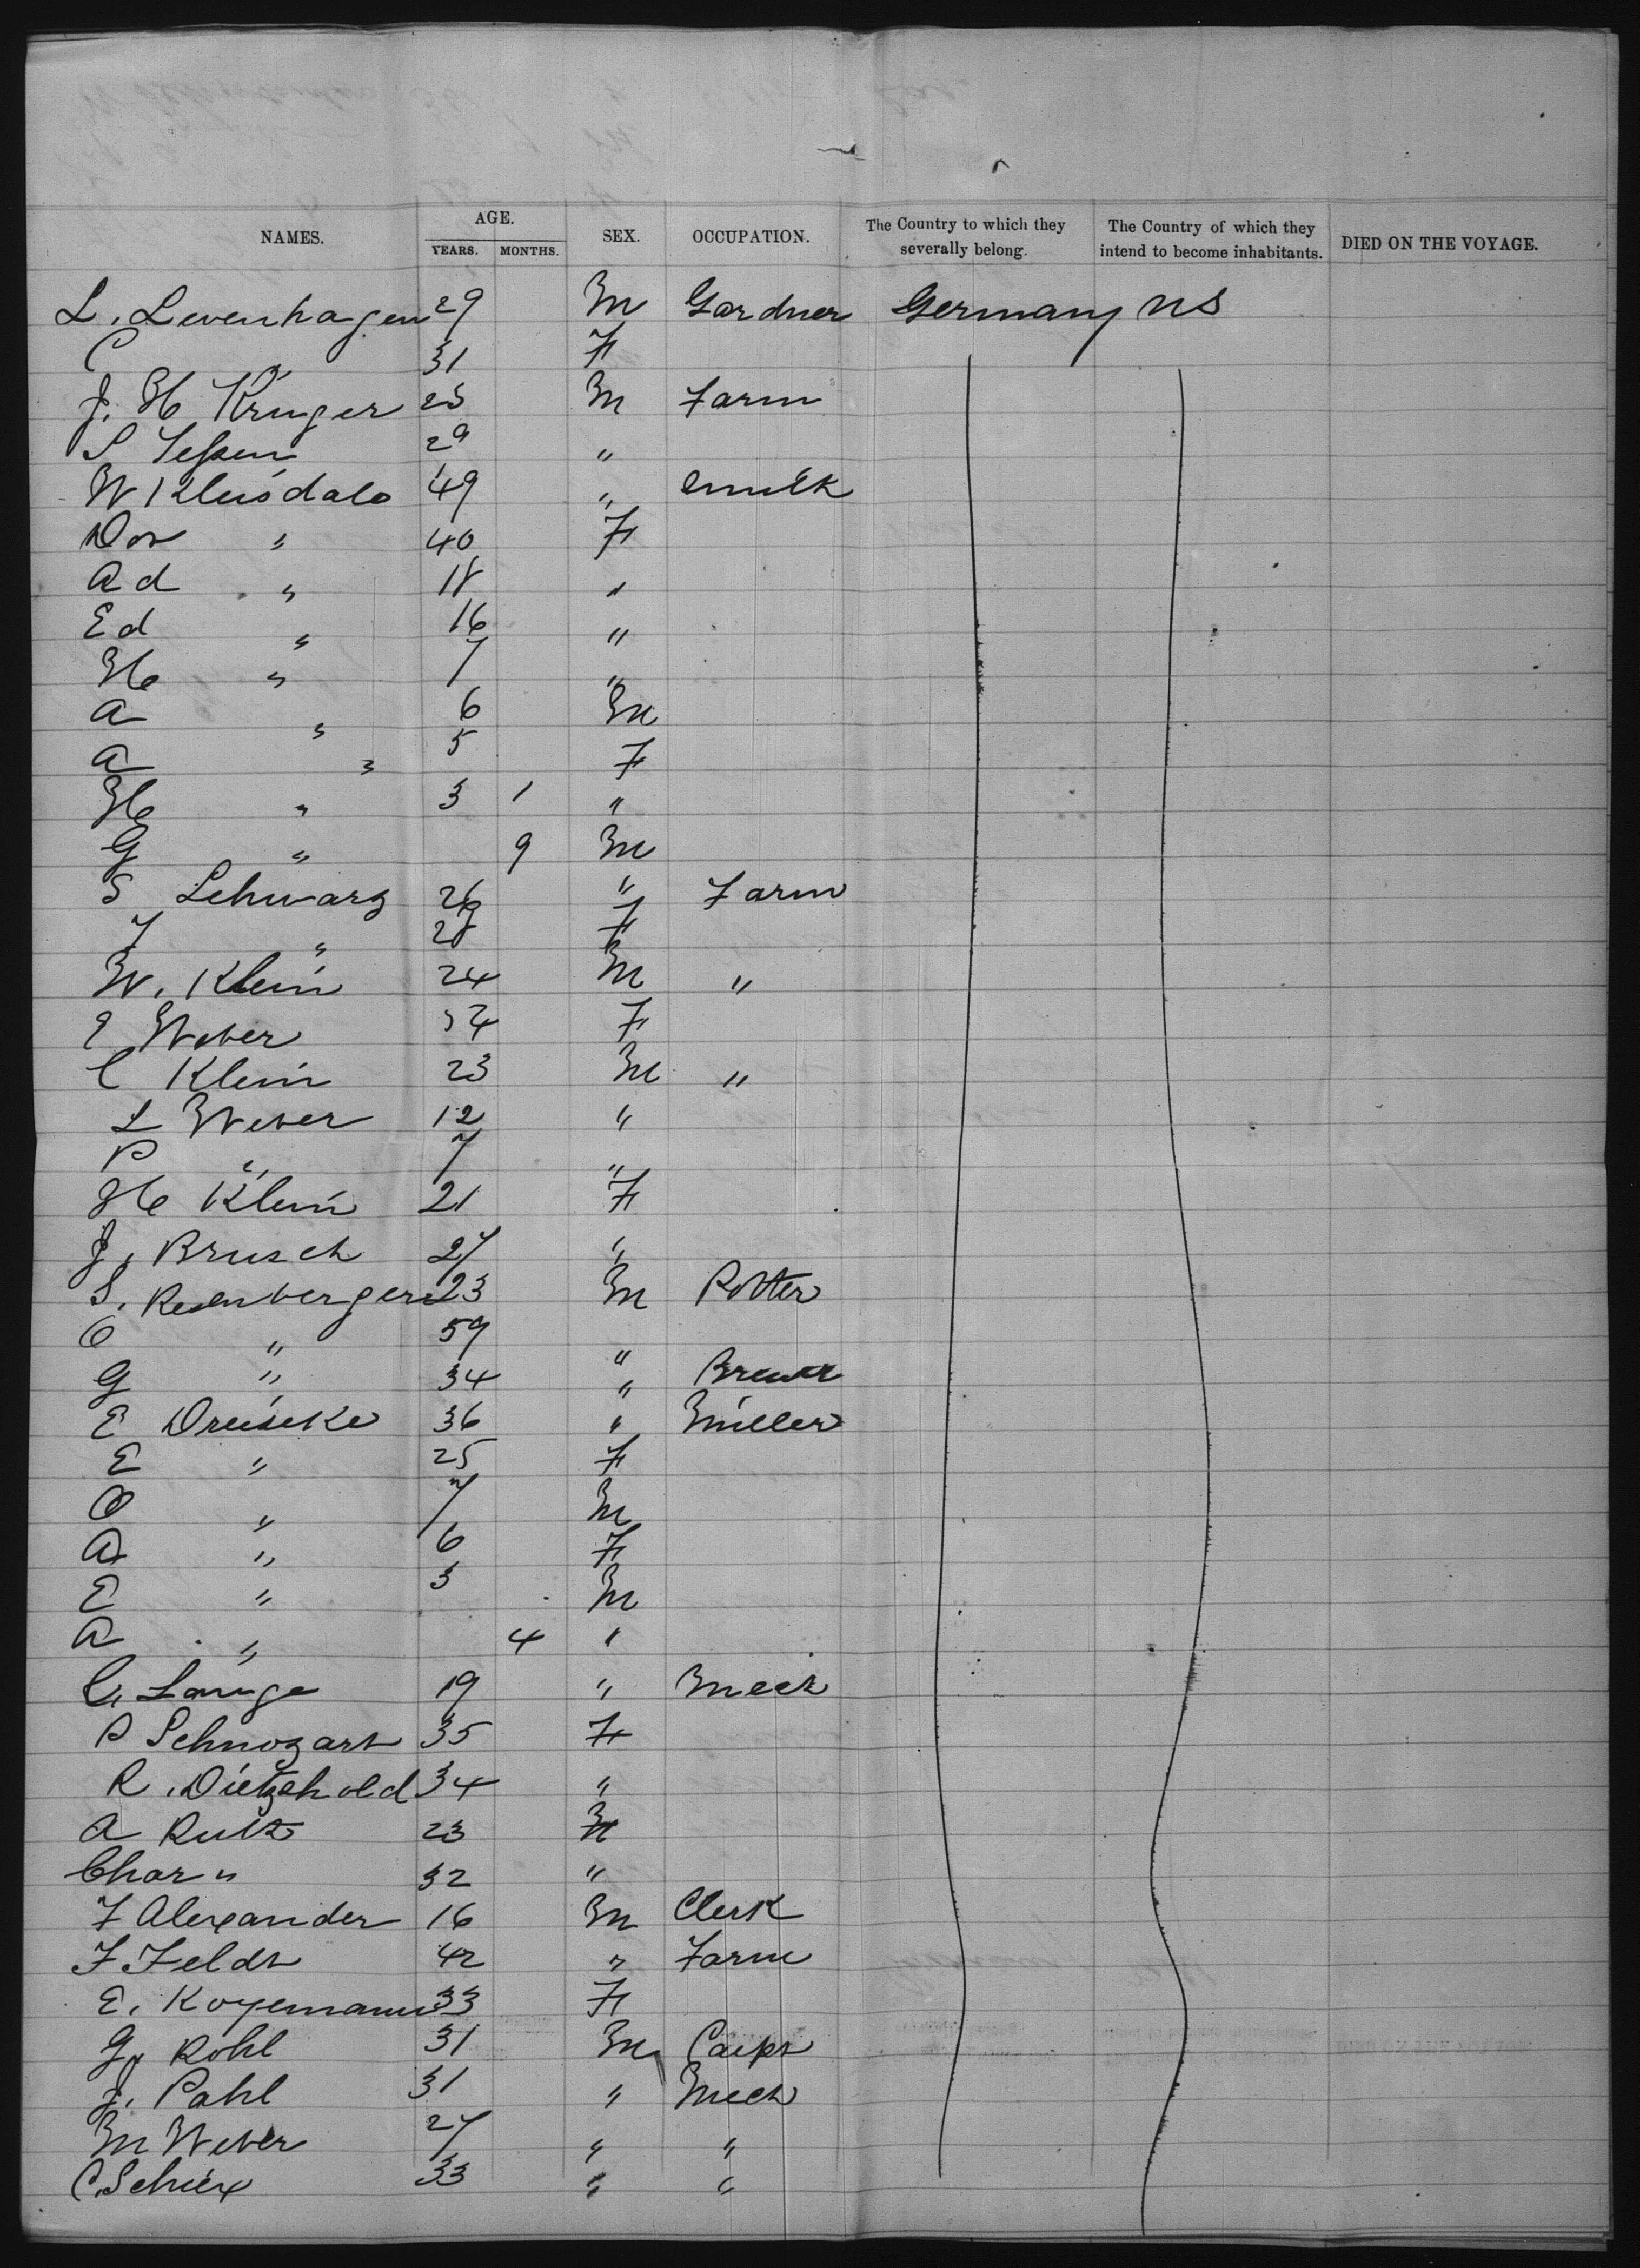 NAMES. AGE. YEARS. MONTHS. SEX. OCCUPATION. The Country to which they severally belong. The Country of which they intend to become inhabitants. DIED ON THE VOYAGE.
L. Levenhagen 29 M Gardner Germany US
C " 31 F
J. H Kruger 25 M Farm
S 29 "
W Kleisdale 49 "
Dor " 40 F
Ad " 18 "
Ed " 16 "
He " 7 "
A " 6 M
A " 5 F
He " 3 1 "
G " 9 M
S Schwarz 26 " Farm
" 28 F
W. Klein 24 M "
E Weber 34 F
C Klein 23 M "
L Weber 12 "
P " 7 "
He Klein 21 F
J. Brusch 27 "
S. 23 M Potter
O " 59 "
G " 34 " Brewer
E Dreiseke 36 " Miller
E " 25 F
O " 7 M
A " 6 F
E " 3 M
A " 4 "
C. Lange 19 " Mech
P 35 F
R. Dietzehold 34 "
A Rutz 23
Char " 32 "
F Alexander 16 M Clerk
F Feldt 42 " Farm
E. Koyemann 33 F
G. Rohl 31 M Carpt
J. Pahl 31 " Mech
M Weber 27 " "
C. 33 " "